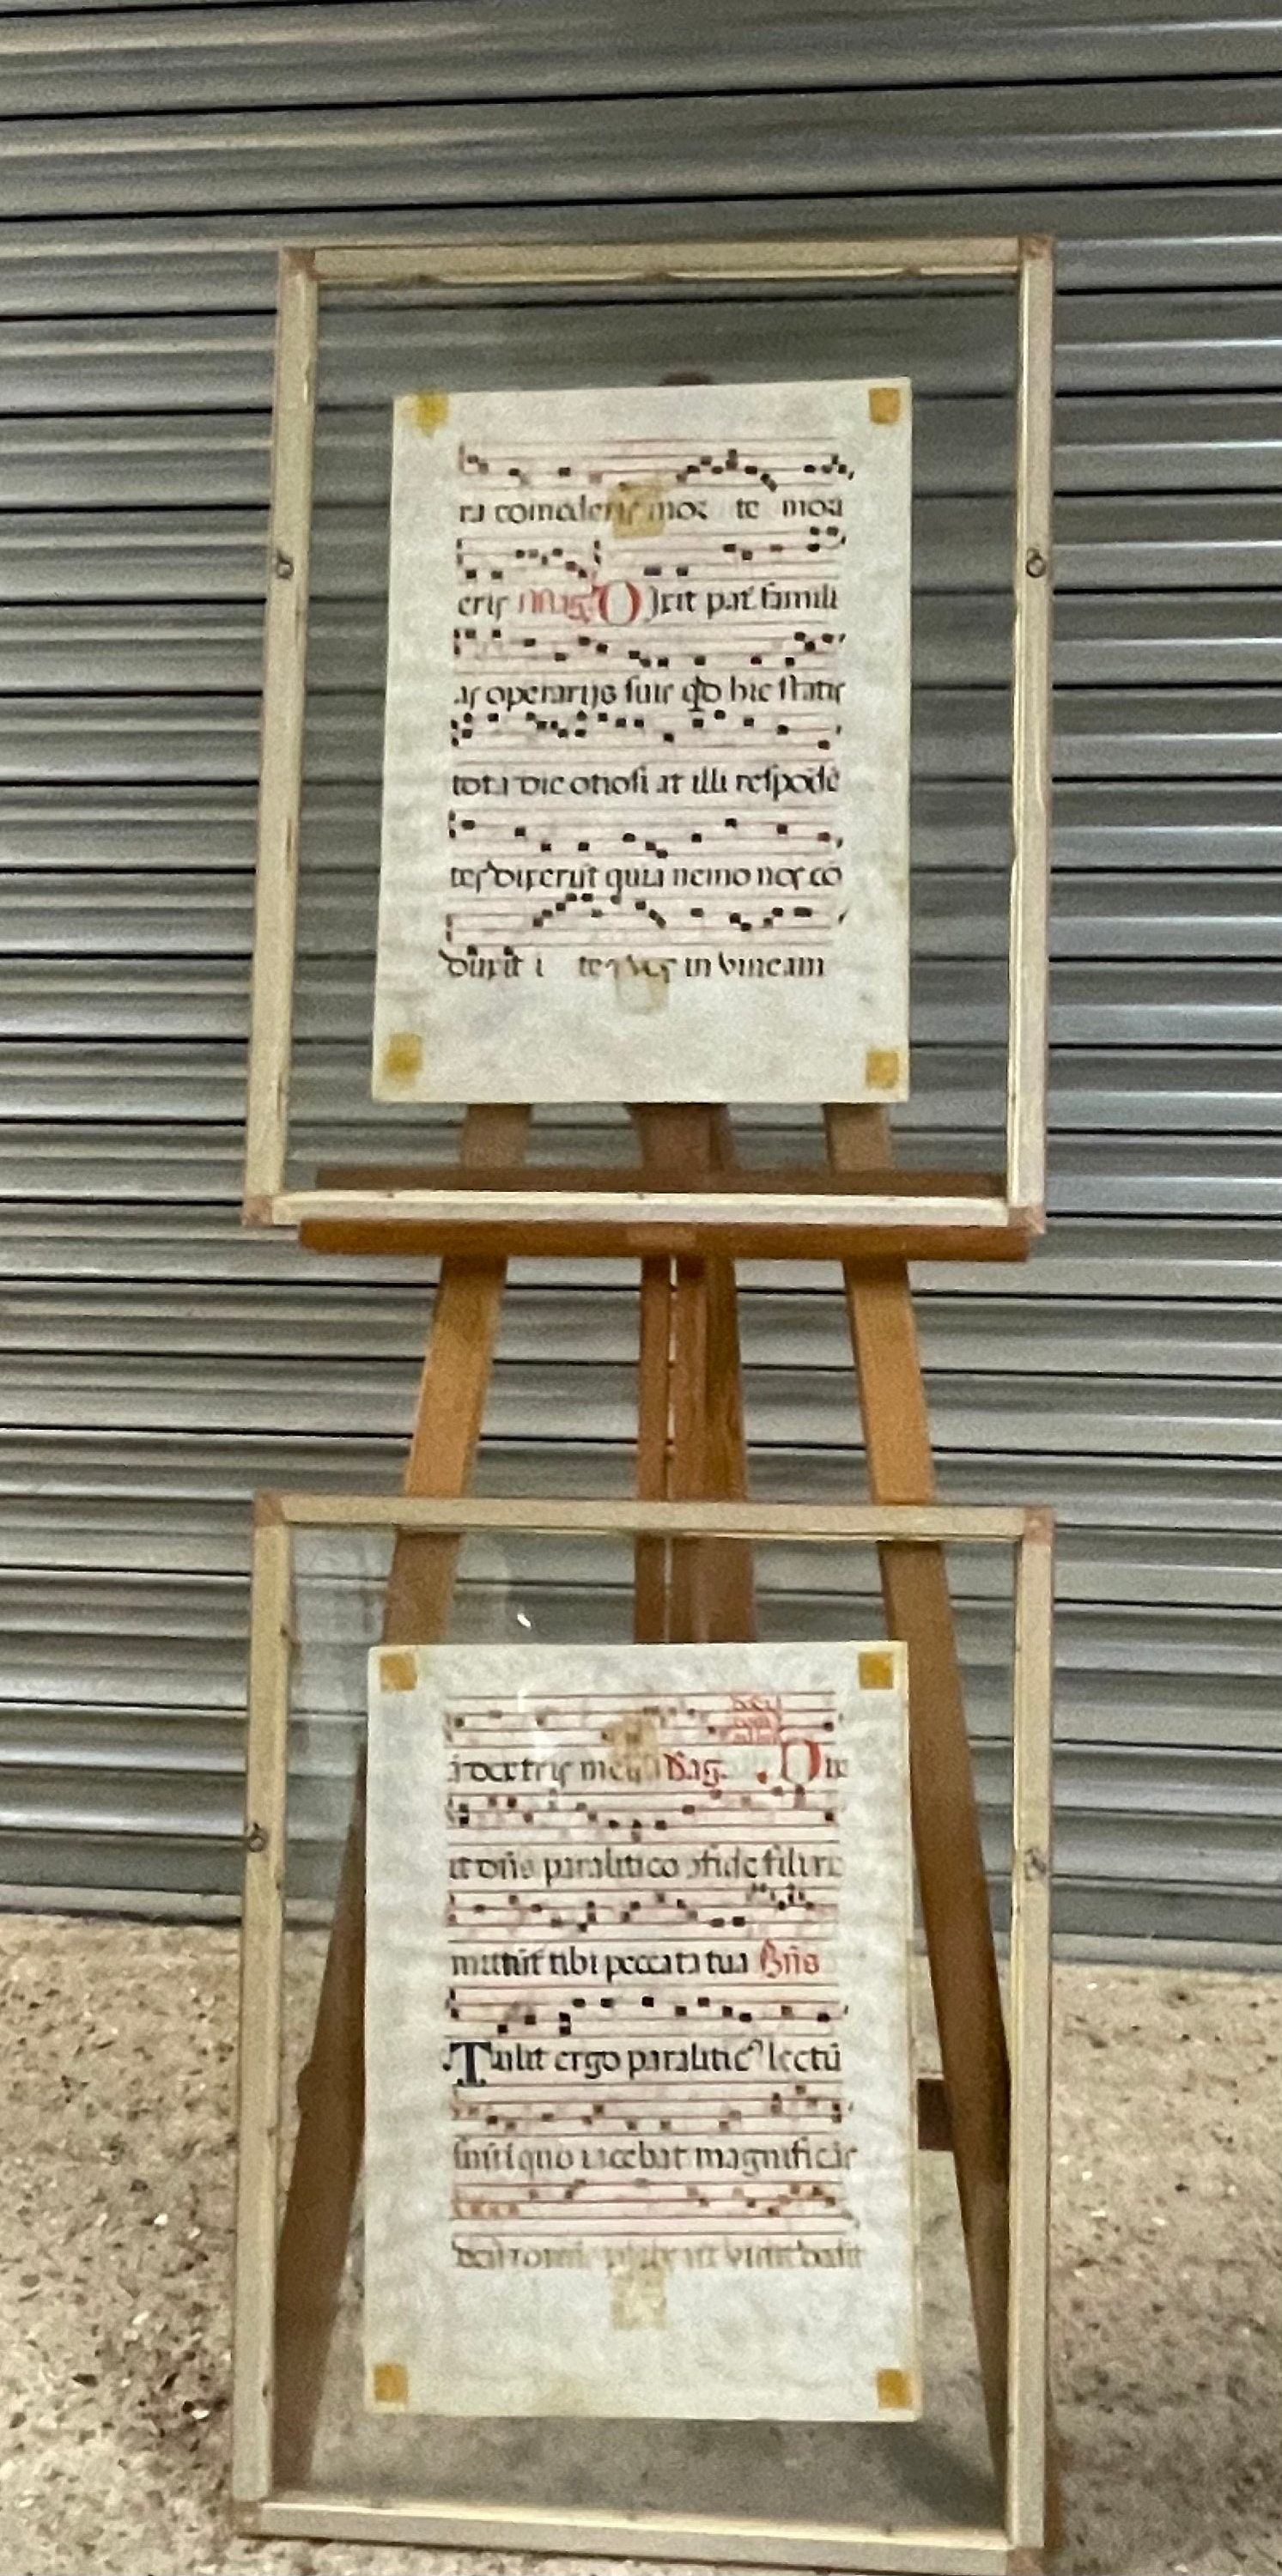 ra comederis mor te mori
eris Mag. Dixit pat famili
as operarijs suis qd hic statis
tota die otiosi at illi respōdē
tes dixerūt quia nemo nos cō
duxit in vineam
a dextris meis Mag. Dix
it dñs paralitico cfide fili re
mittūt tibi peccata tua Bñs
Tulit ergo paralitic' lectū
suū ī quo iacebat magnificās